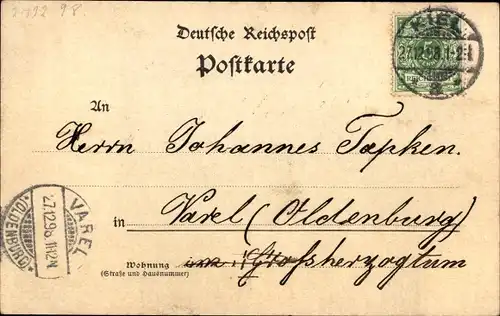 Deutsche Reichspost
Postkarte
KIEL
27.12.98.1-2N
REICHSPOST
An
Herrn Johannes Tapken.
in Varel (Oldenburg)
Wohnung im Großherzogtum
(Straße und Hausnummer)
VAREL
27.12.98.11-12N.
(OLDENBURG)